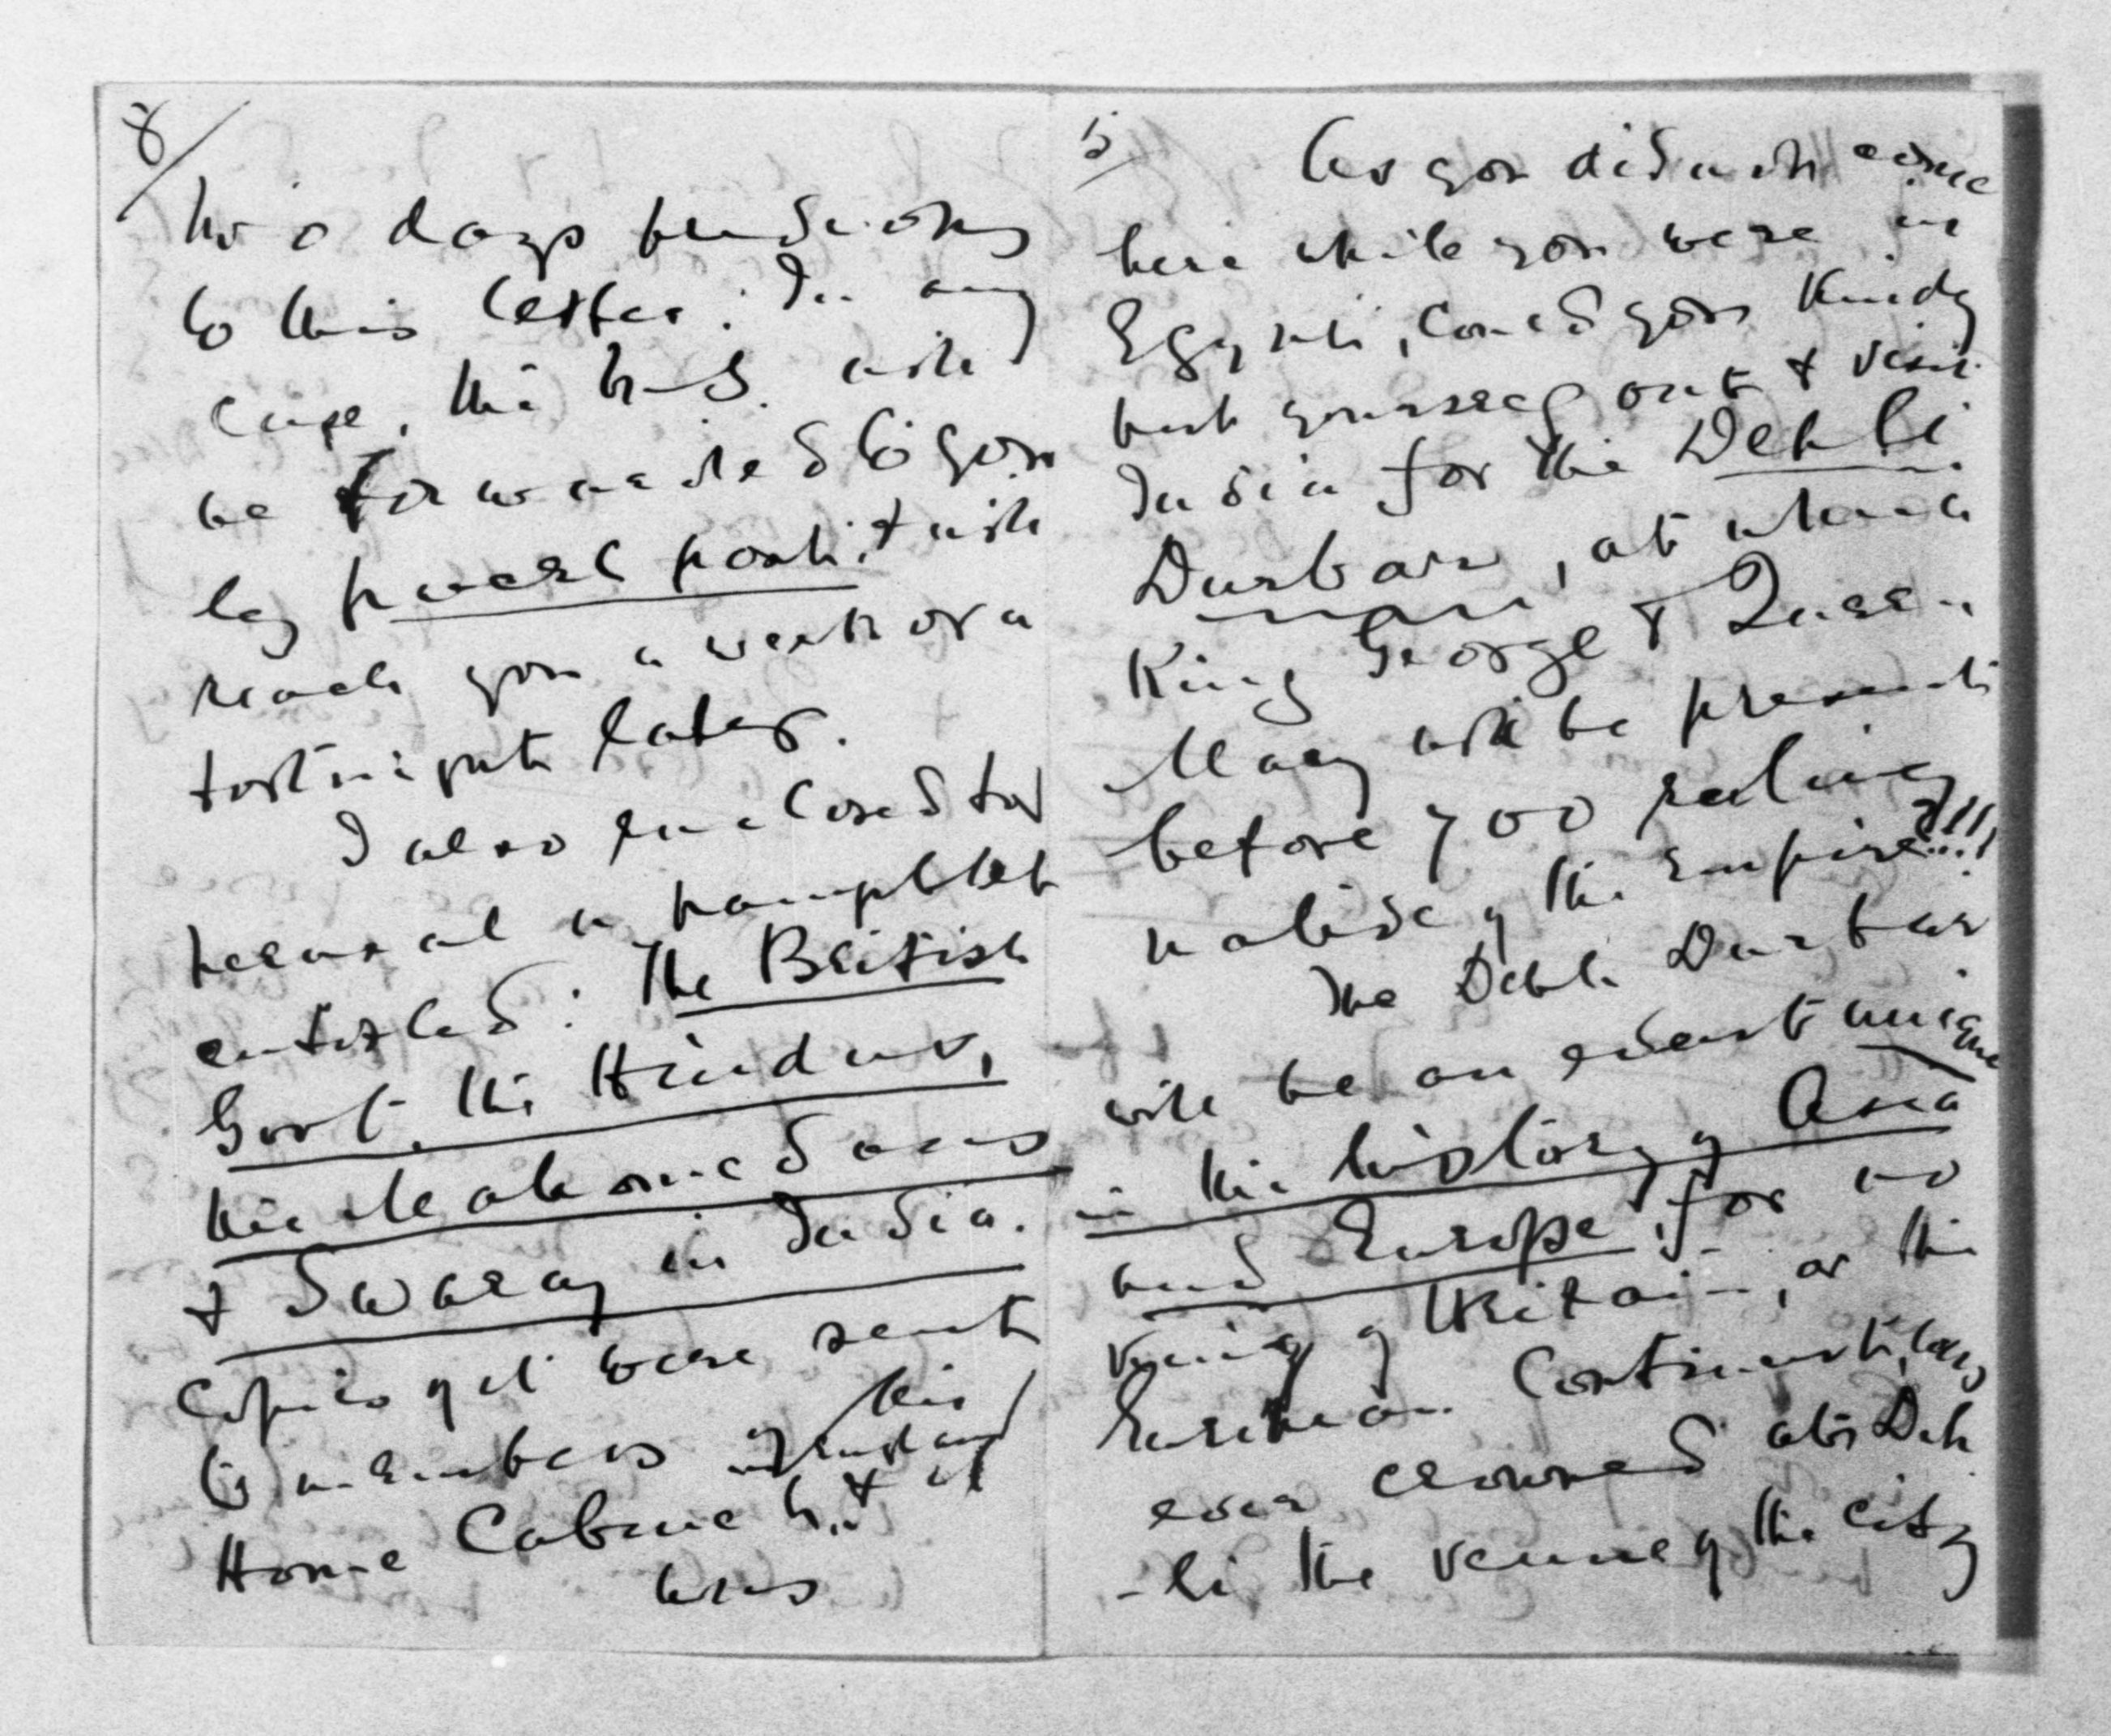 8/
two days previous
to this letter. In any
case, the book will
be forwarded to you
by parcel post, & will
reach you a week or a
fortnight later.
I also enclosed for
perusal a pamphlet
entitled: The British
Govt. the Hindus,
the Mahomedans
& Swaraj in India.
Copies of it were sent
to members of the
Home Cabinet, & it
was
5/
As you did not come
here while you were in
Egypt, could you kindly
put yourself out & visit
India for the Dehli
Durbar, at which
King George & Queen
Mary will be present
before 700 ruling
nobles of the Empire!!!!
The Dehli Durbar
will be an event unique
in the history of Asia
and Europe, for no
King of Britain, or the
European Continent, was
ever crowned at Deh
-li the venue of the city